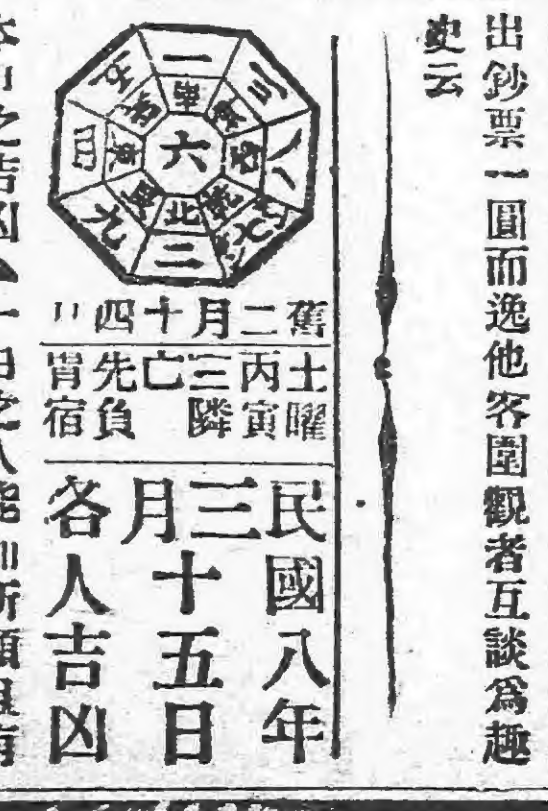 出鈔票一圓而逸他客圍觀者互談爲趣
史云
一
三
八
七
二
北
九
四
五
六
舊二月十四日
土曜
丙寅
三隣
亡
先負
胃宿
民國八年
三月十五日
各人吉凶
之吉凶▲一白之人能